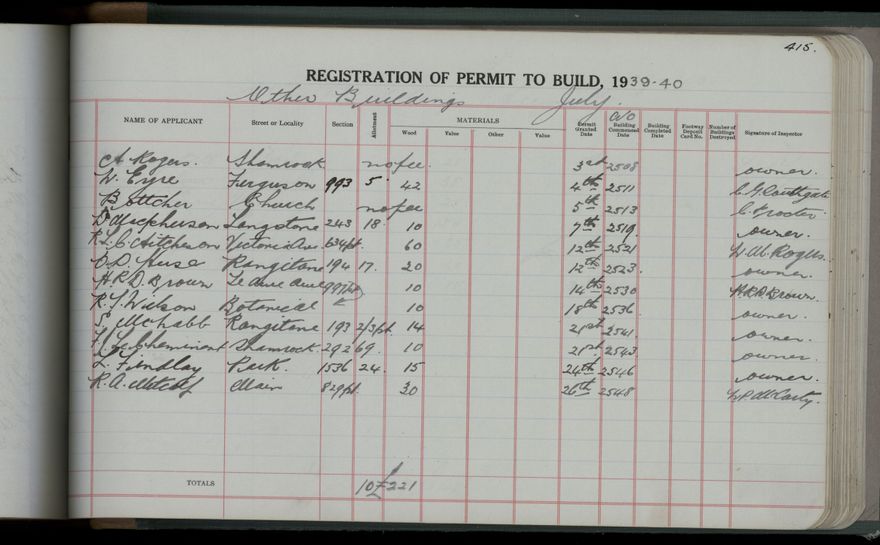 415.
REGISTRATION OF PERMIT TO BUILD, 1939-40
Other Buildings July.
NAME OF APPLICANT Street or Locality Section Allotment MATERIALS Wood Value Other Value Permit Granted Date No Building Commenced Date Building Completed Date Footway Deposit Card No. Number of Buildings Destroyed Signature of Inspector
A Rogers. Shamrock no fee. 3rd 2508 owner.
W. Eyre Ferguson 993 5 42 4th 2511 C. G. Southgate
Bottcher Church no fee 5th 2513 C. Procter
D Macpherson Langstone 243 18 10 7th 2519. owner.
R. L. C. Aitchison Victoria Ave. 634pt. 60 12th 2521 W. M. Rogers.
Rangitane 194 17. 20 12th 2523. owner.
H. R. D. Brown Te Awe Awe 997pt 10 14th 2530 H.R.D. Brown.
R. J. Wilson Botanical 10 18th 2536. owner.
S. McNabb Rangitane 193 2/3/pt. 14 21st 2541. owner.
Shamrock. 292 69. 10 21st 2543 owner.
L. Findlay Park. 1536 24. 15 24th 2546 owner.
R. A. Metcalf Main 829pt. 30 26th 2548 W. P. McCarty.
TOTALS 10 £221